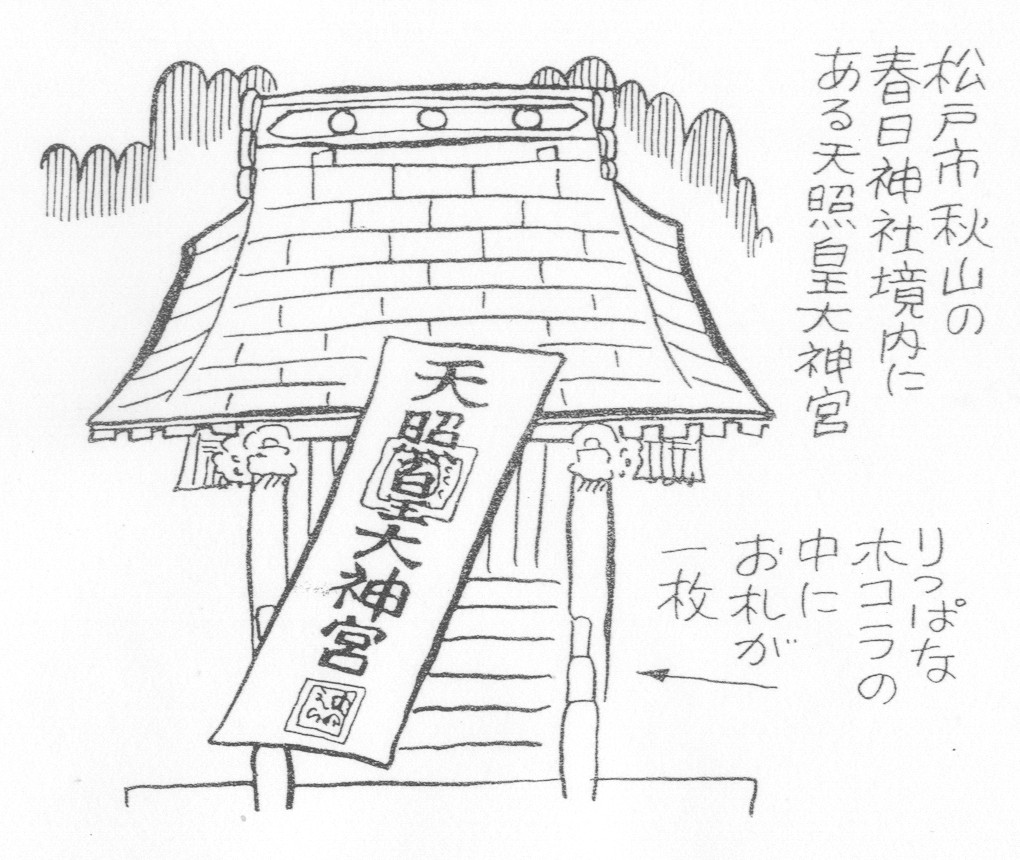 松戸市秋山の
春日神社境内に
ある天照皇大神宮
りっぱな
ホコラの
中に
お札が
一枚
天照皇大神宮